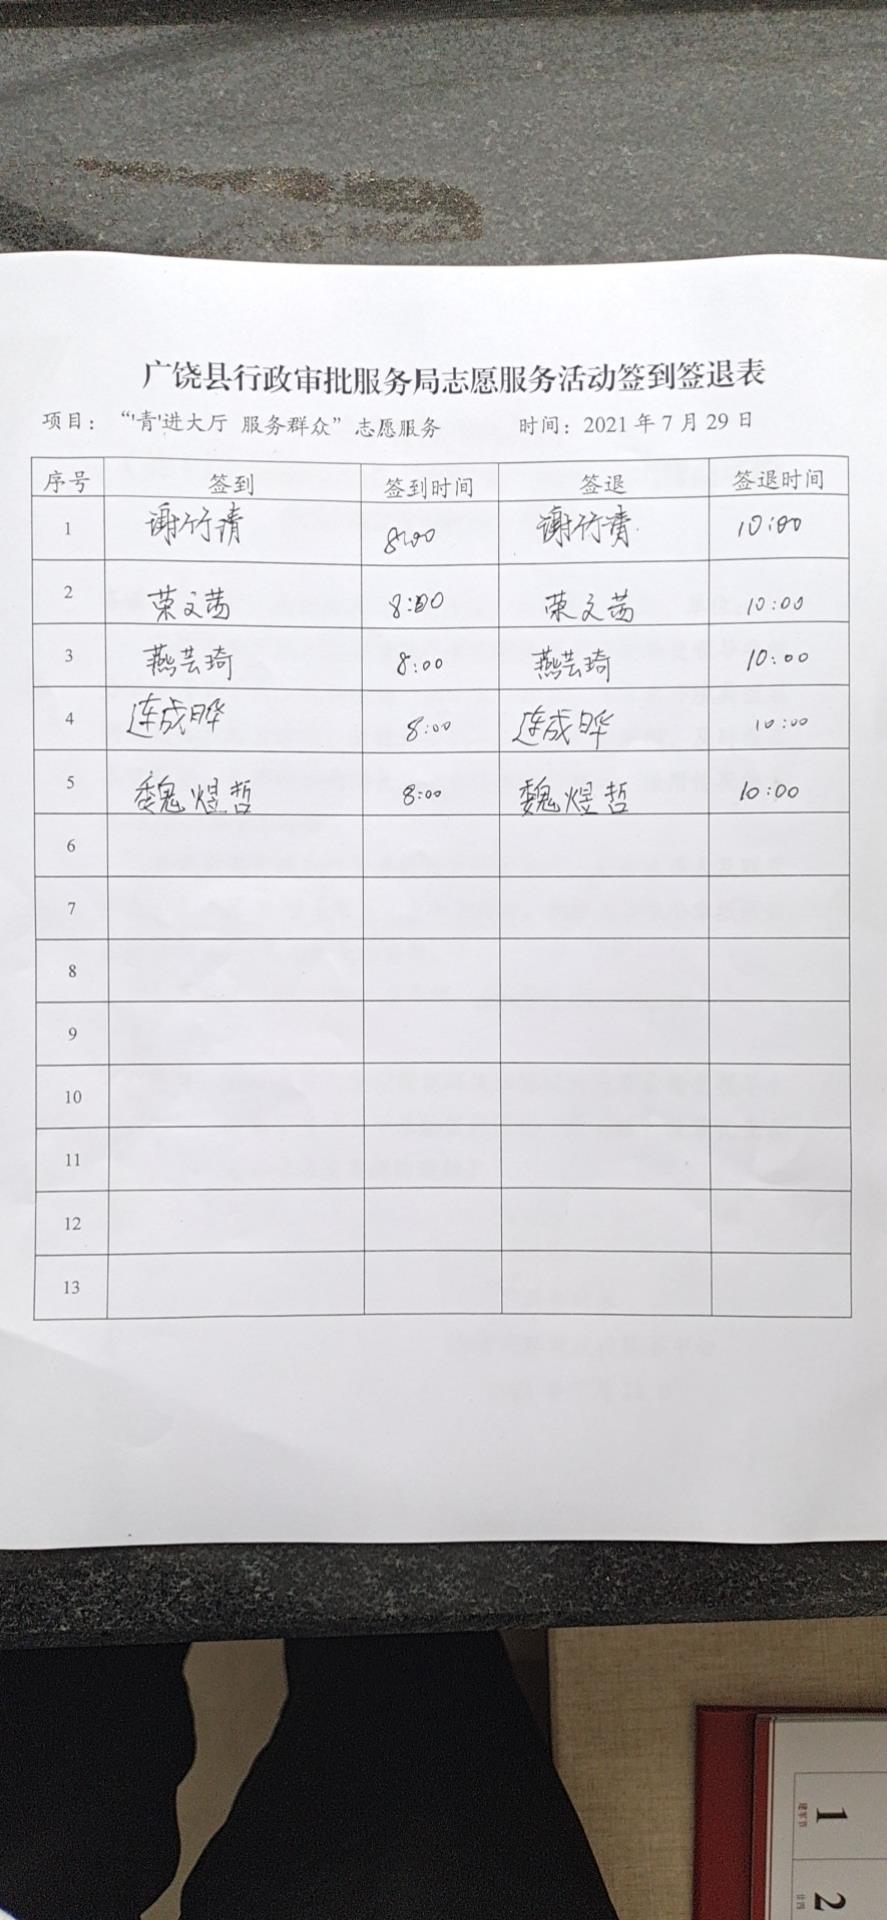 广饶县行政审批服务局志愿服务活动签到签退表
项目：“'青'进大厅 服务群众”志愿服务 时间：2021年7月29日
序号 签到 签到时间 签退 签退时间
1 谢竹青 8:00 谢竹青 10:00
2 荣文茜 8:00 荣文茜 10:00
3 燕芸琦 8:00 燕芸琦 10:00
4 连成晔 8:00 连成晔 10:00
5 魏煜哲 8:00 魏煜哲 10:00
6
7
8
9
10
11
12
13
1
建军节
2
廿四